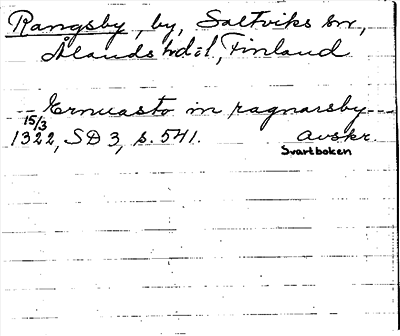 Rangsby, by, Saltviks sn,
Ålands hd:l, Finland
-- Ernuasto in ragnarsby --
15/3
1322, SD 3, s. 541. avskr.
Svartboken